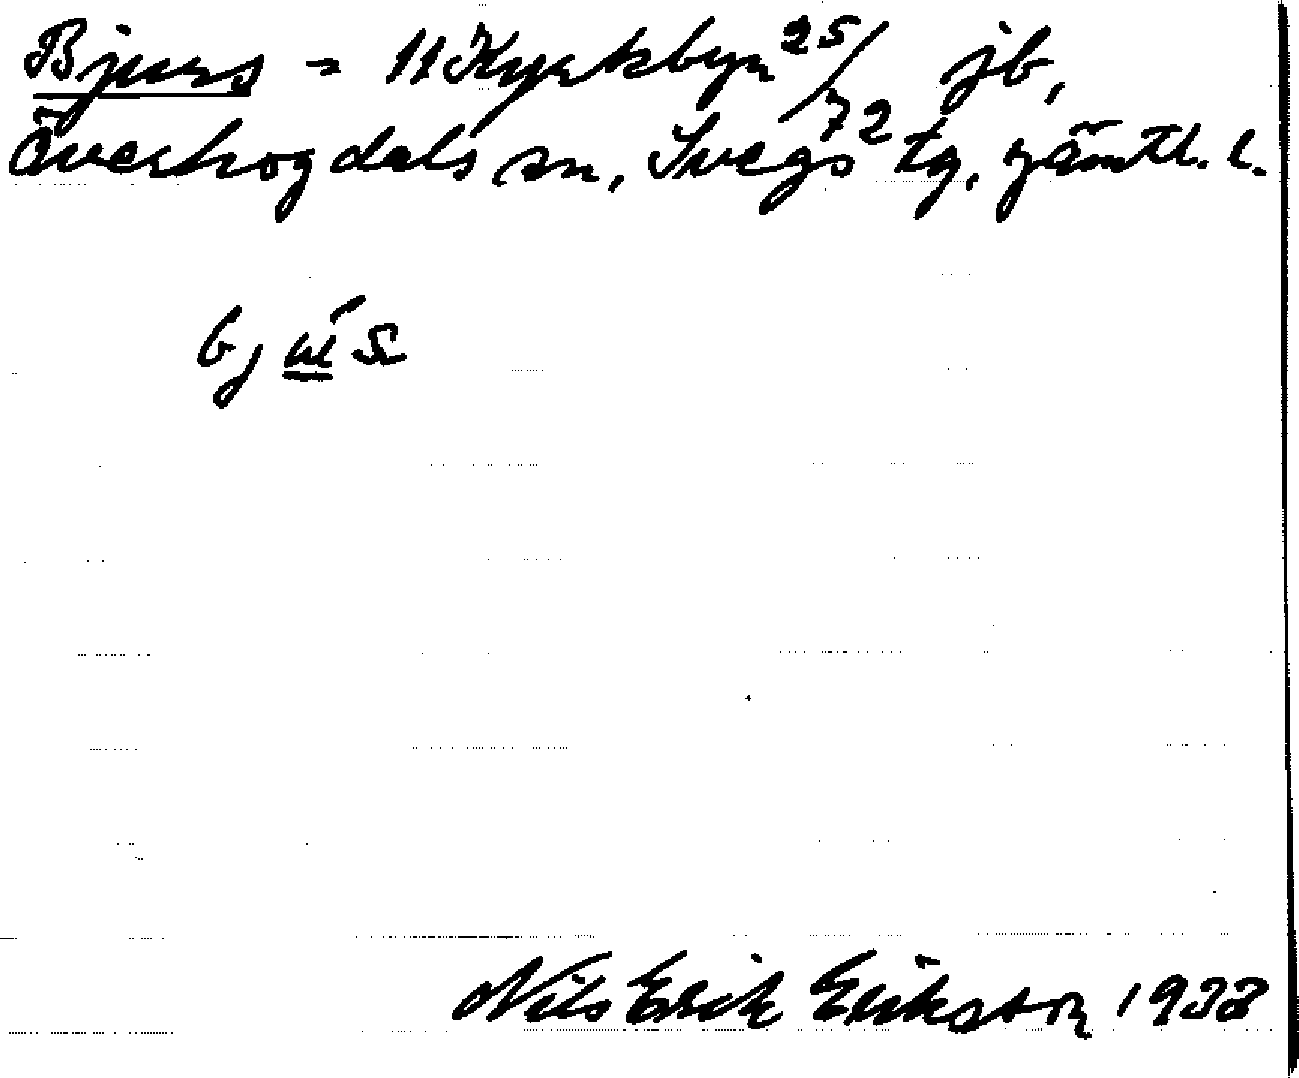 Bjurs = 11 Kyrkbyn 25/72 jb,
Överhogdals sn, Svegs tg, Jämtl. l.
Nils Erik Erikson 1933